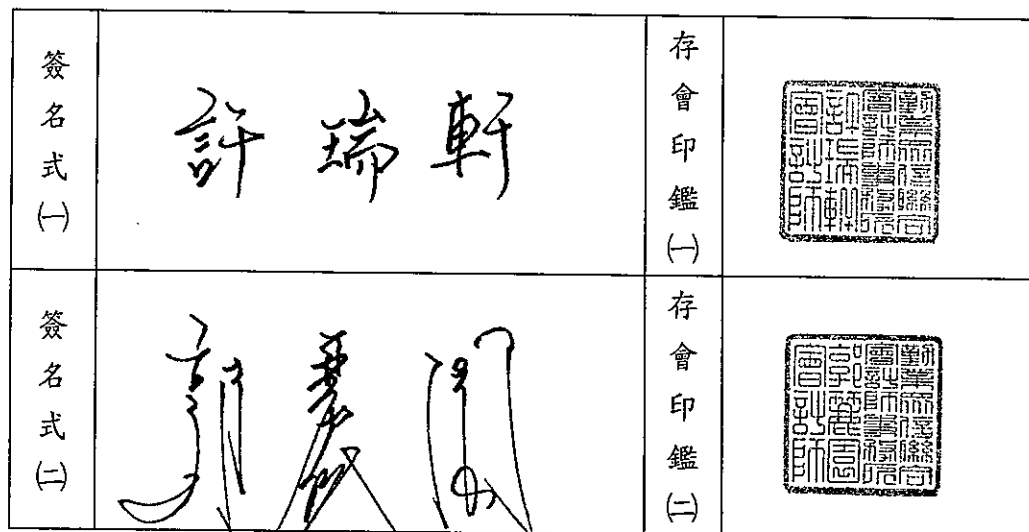 簽名式㈠
許瑞軒
存會印鑑㈠
勤業眾信聯合
會計師事務所
許瑞軒
會計師
簽名式㈡
存會印鑑㈡
勤業眾信聯合
會計師事務所
郭麗園
會計師